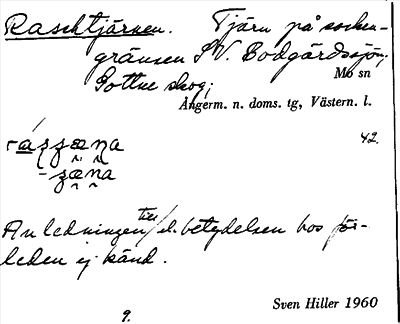 Raschtjärnen. Tjärn på socken-
gränsen SV. Bodgärdssjön;
Mo sn
Gottne skog;
Ångerm. n. doms. tg, Västern. l.
42.
Anledningen till / el. betydelsen hos för-
leden ej känd.
Sven Hiller 1960
9.